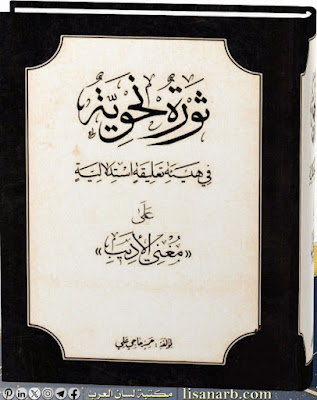 ثورة نحوية
في هيئة تعليقة استدلالية
على
«مغني الأديب»
لمؤلفه:
مكتبة لسان العرب lisanarb.com